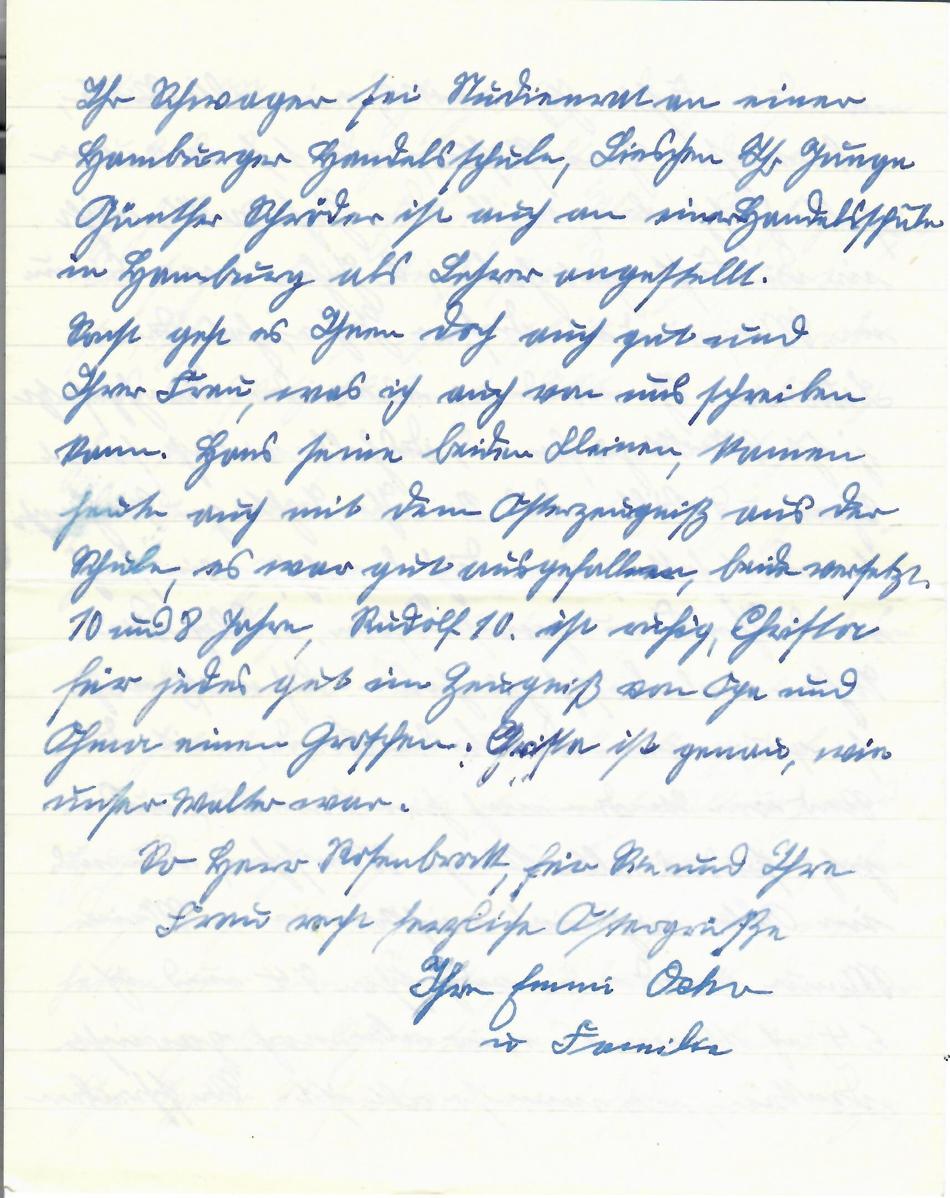 Ihr Schwager sei Studienrat an einer
Hamburger Handelsschule, Lieschen Ihr Junge
Günther Schröder ist auch an einer Handelsschule
in Hamburg als Lehrer angestellt.
Sonst geht es Ihnen doch auch gut und
Ihrer Frau, was ich auch von uns schreiben
kann. Hans seine beiden Kleinen, kamen
heute auch mit dem Osterzeugniß aus der
Schule, es war gut ausgefallen, beide versetzt.
10 und 8 Jahre, Rudolf 10. ist ruhig, Christa
für jedes gut im Zeugniß von Opa und
Ohma einen Groschen. Christa ist genau, wie
unser Walter war.
So Herr Rosenbrock, für Sie und Ihre
Frau recht herzliche Ostergrüße
Ihre Emmi
u Familie